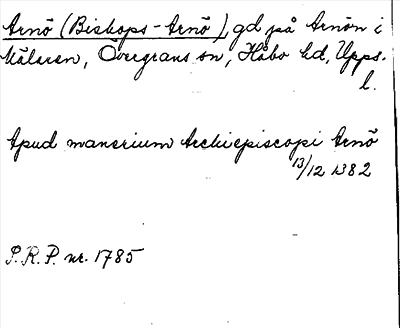 Arnö (Biskops-Arnö), gd på Arnön i
Mälaren, Övergrans sn, Håbo hd, Upps.
l.
Apud manerium Archiepiscopi Arnö
13/12 1382
P.R.P. nr. 1785